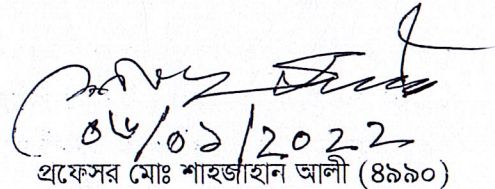 ০৬/০১/2022
প্রফেসর মোঃ শাহজাহান আলী (৪৯৯০)